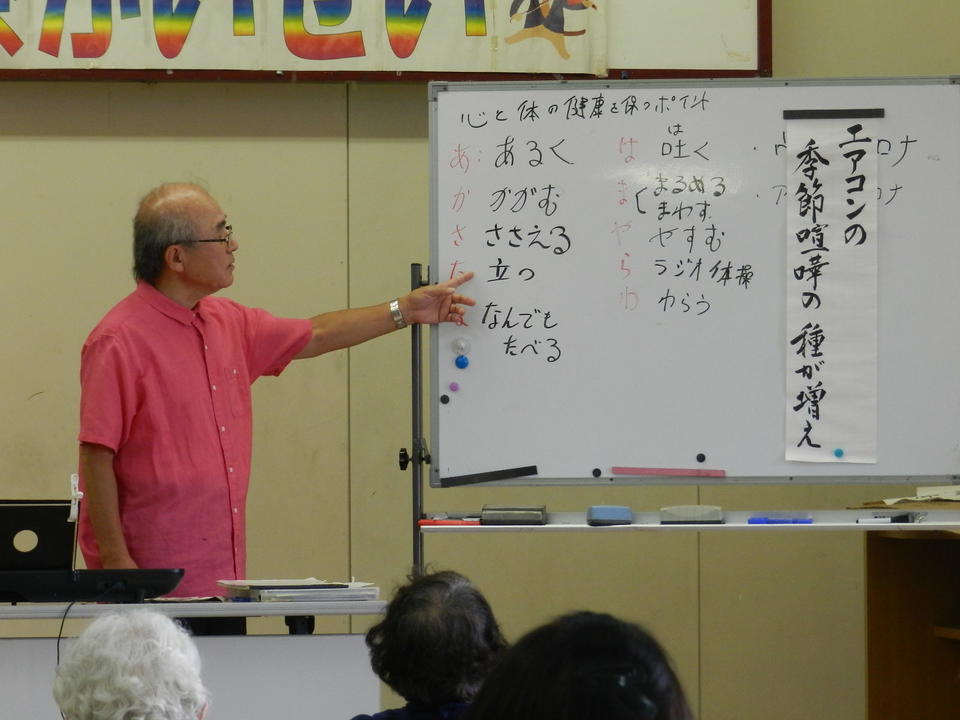 かいせい
心と体の健康を保つポイント
あ: あるく
か かがむ
さ ささえる
た 立つ
な なんでも
たべる
は 吐く
は
ま まるめる
まわす
や やすむ
ら ラジオ体操
わ わらう
エアコンの
季節喧嘩の種が増え